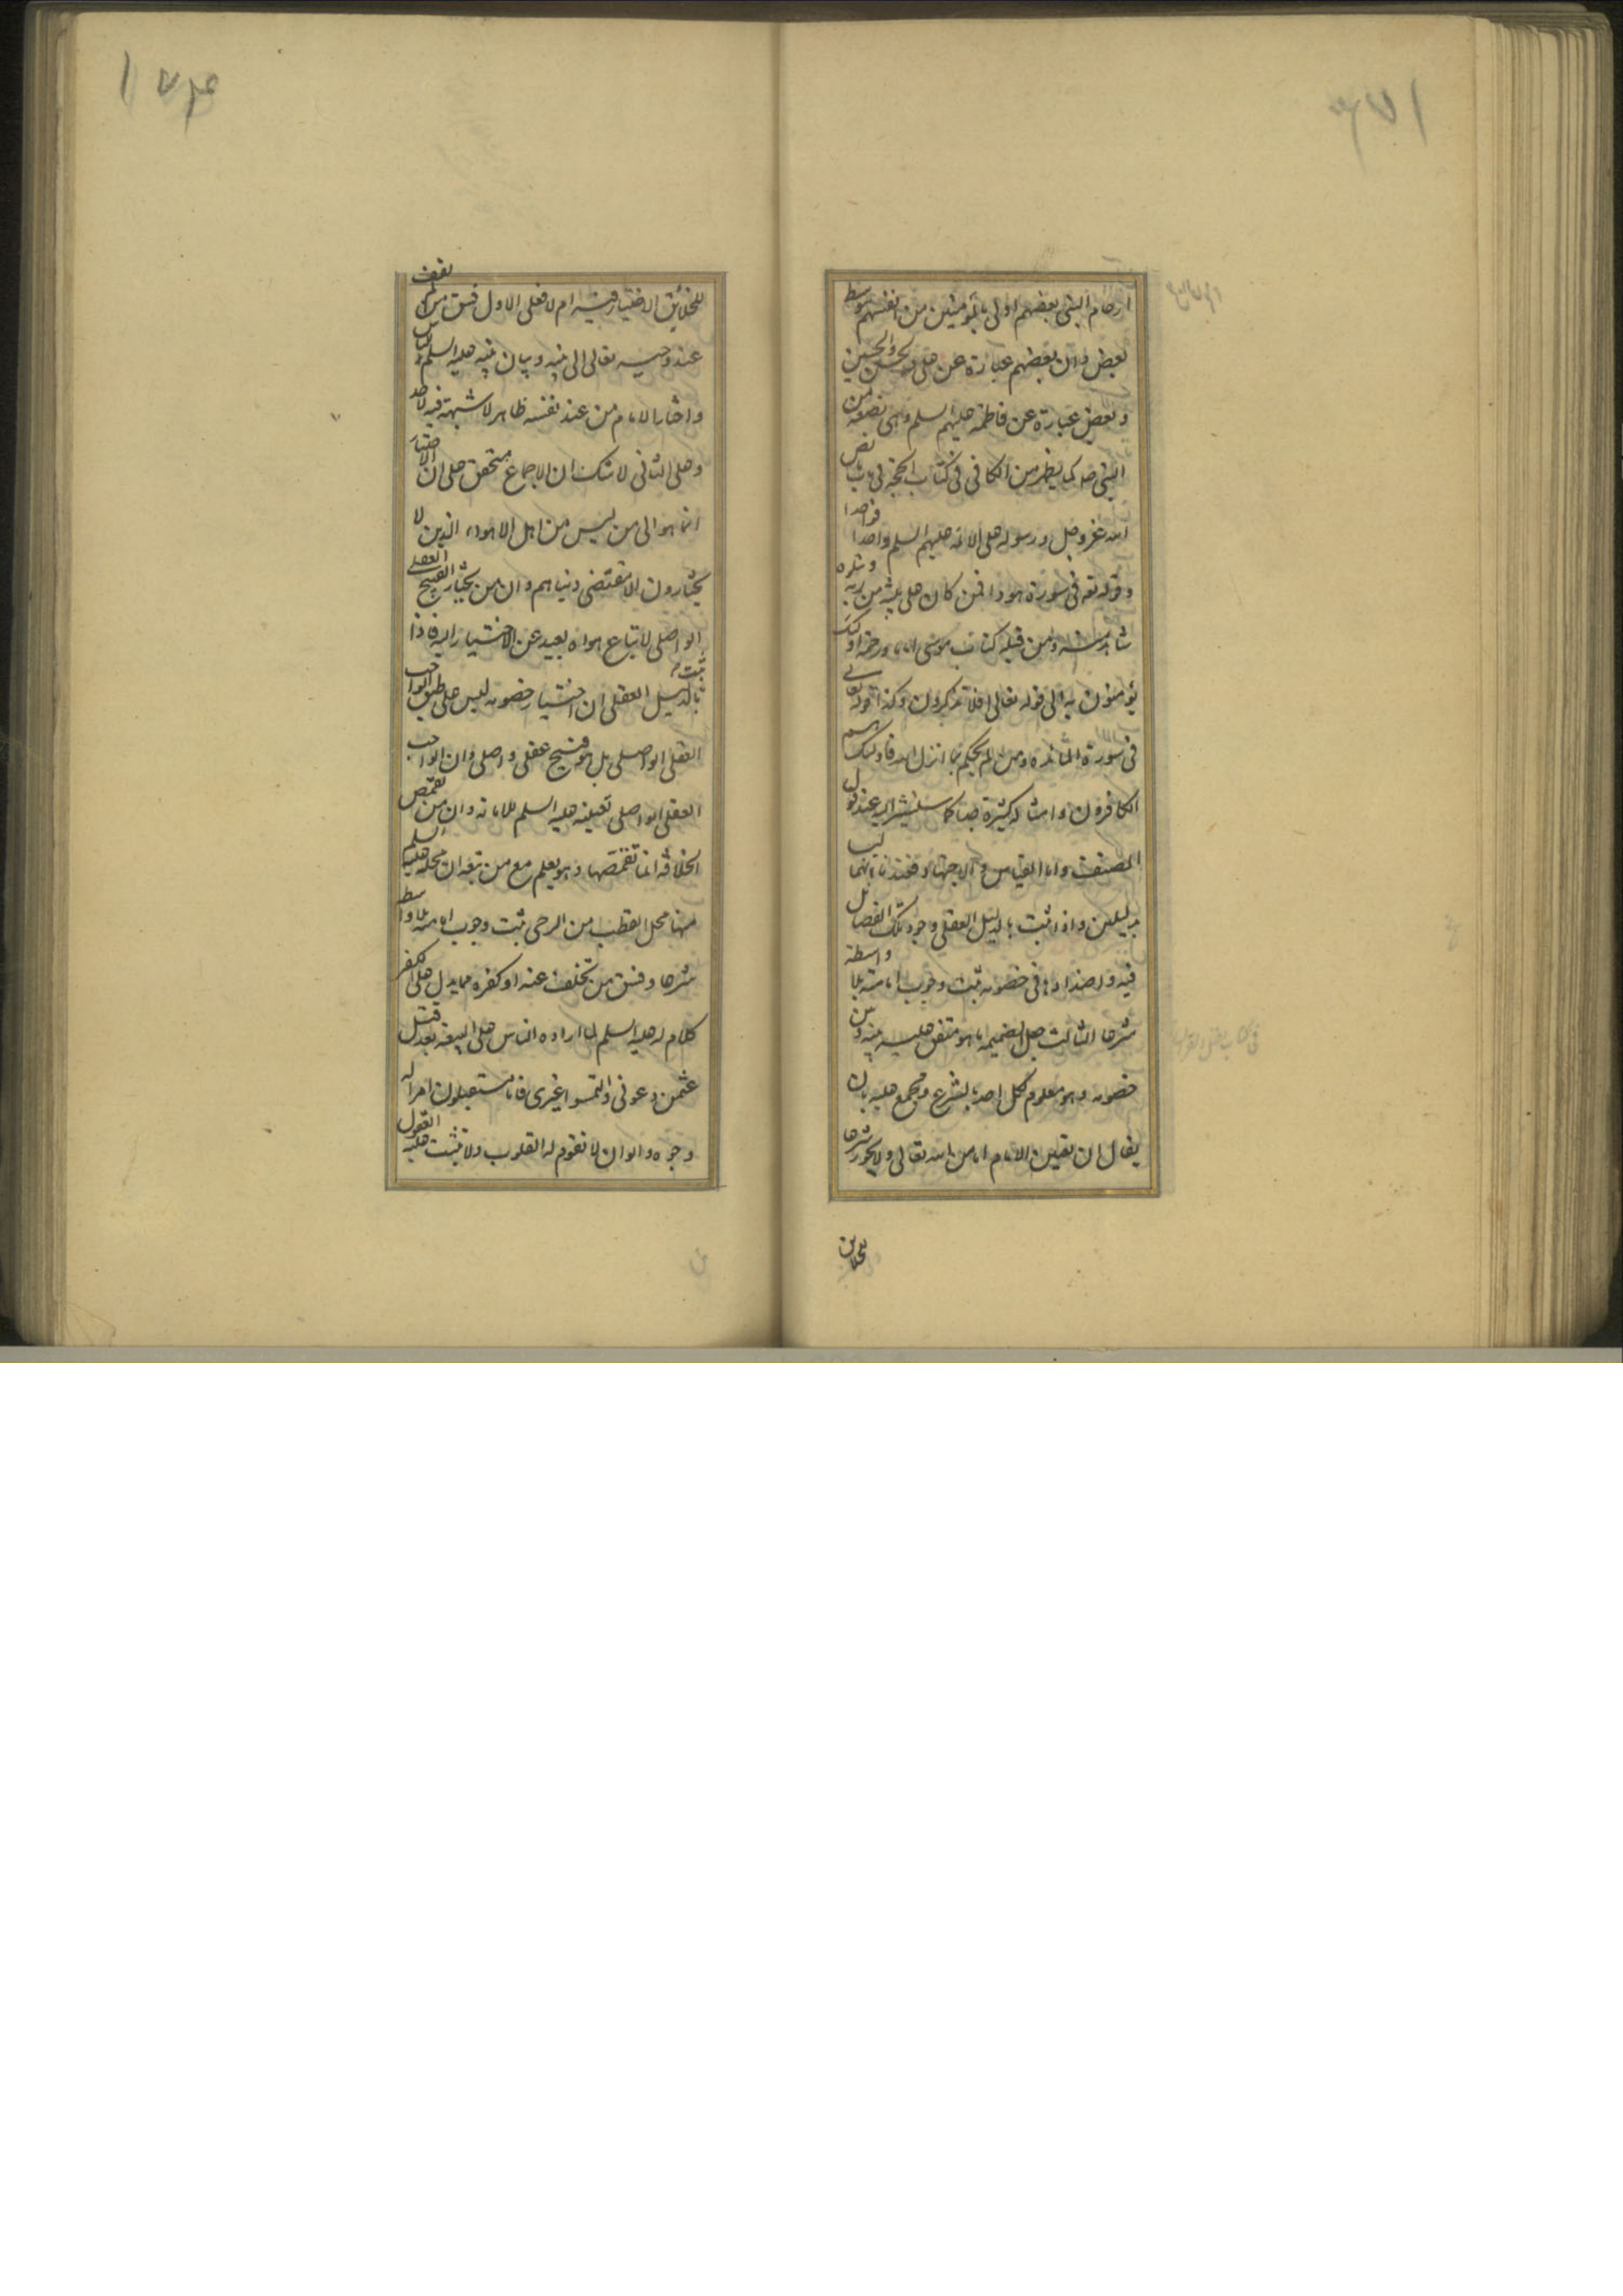 ارحام النبی بعضهم اولی بالمؤمنین من انفسهم بتوسط
بعض وان بعضهم عبارة عن علی والحسن والحسین
وبعض عبارة عن فاطمة علیهم السلم وهی بضعة من
النبی صلى كما یظهر من الكافی فی كتاب الحجة فی باب نص
الله عز وجل ورسوله علی الائمة علیهم السلم واحدا فواحدا
وقوله تعه فی سورة هود افمن كان علی بینة من ربه ویتلوه
شاهد منه ومن قبله كتاب موسی اماما ورحمة اولئك
یؤمنون به الی قوله تعالی افلا تذكرون وكذا قوله تعالی
فی سورة المائدة ومن لم یحكم بما انزل الله فاولئك هم
الكافرون وامثاله كثیرة جدا كما سنشیر الیه عند قول
المصنف واما القیاس والاجتهاد فعندنا انهما لیسا
بدلیلین واذا ثبت بالدلیل العقلی وجود تلك الفضایل
فیه واضدادها فی خصومه ثبت وجوب امامته بلا واسطة
شرعا الثالث جعل الضمیمة ما هو متفق علیه بینه وبین
خصومه وهو معلوم لكل احد بالشرع ومجمع علیه بان
یقال ان تعیین الامام اما من الله تعالی ولا یجوز شرعا
للخلایق
للخلائق الاختیار فیه ام لا فعلی الاول فسق من تخلف
عند وحیه تعالی الی نبیه وبیان نبیه علیه السلم للناس
واختار الامام من عند نفسه ظاهر لا شبهة فیه لاحد
وعلی الثانی لا شك ان الاجماع متحقق علی ان الاختیار
انما هو الی من لیس من اهل الاهواء الذین لا
یختارون الا مقتضی دنیاهم وان من یختار القبیح العقلی
الواصلی لاتباع هواه بعید عن الاختیار الیه فاذا
ثبت بالدلیل العقلی ان اختیار خصومه لیس علی طبق الواجب
العقلی الواصلی بل هو قبیح عقلی واصلی وان الواجب
العقلی الواصلی تعیینه علیه السلم للامامة وان من تقمص
الخلافة انما تقمصها وهو یعلم مع من تبعه ان محله علیه السلم
منها محل القطب من الرحی ثبت وجوب امامته بلا واسطه
شرعا وفسق من تخلف عنه او كفره مما یدل علی الكفر
كلام له علیه السلم لما اراده الناس علی البیعة بعد قتل
عثمن دعونی والتمسوا غیری فانا مستقبلون امرا له
وجوه والوان لا تقوم له القلوب ولا تثبت علیه العقول